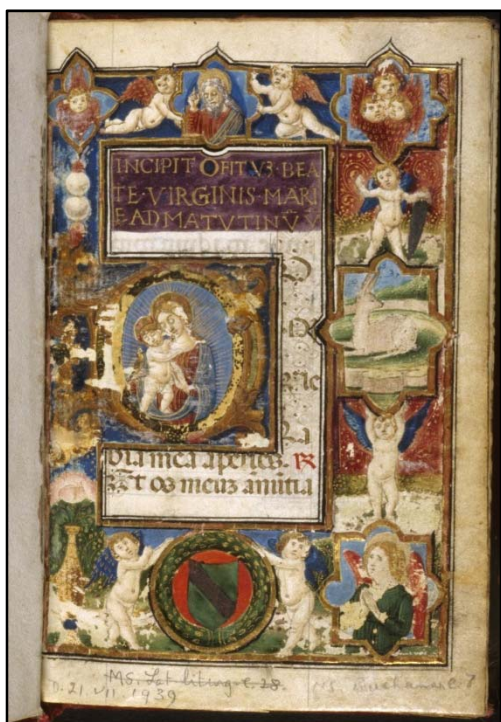 INCIPIT OFITVȜ·BEA
TE·VIRGINIS·MARI
E·AD MATVTINV̄
D
La
bia mea aperies. R
Et os meuz anutia
MS. Lat liturg. e. 28.
D. 21. VII. 1939
MS. Buchanan e. 7